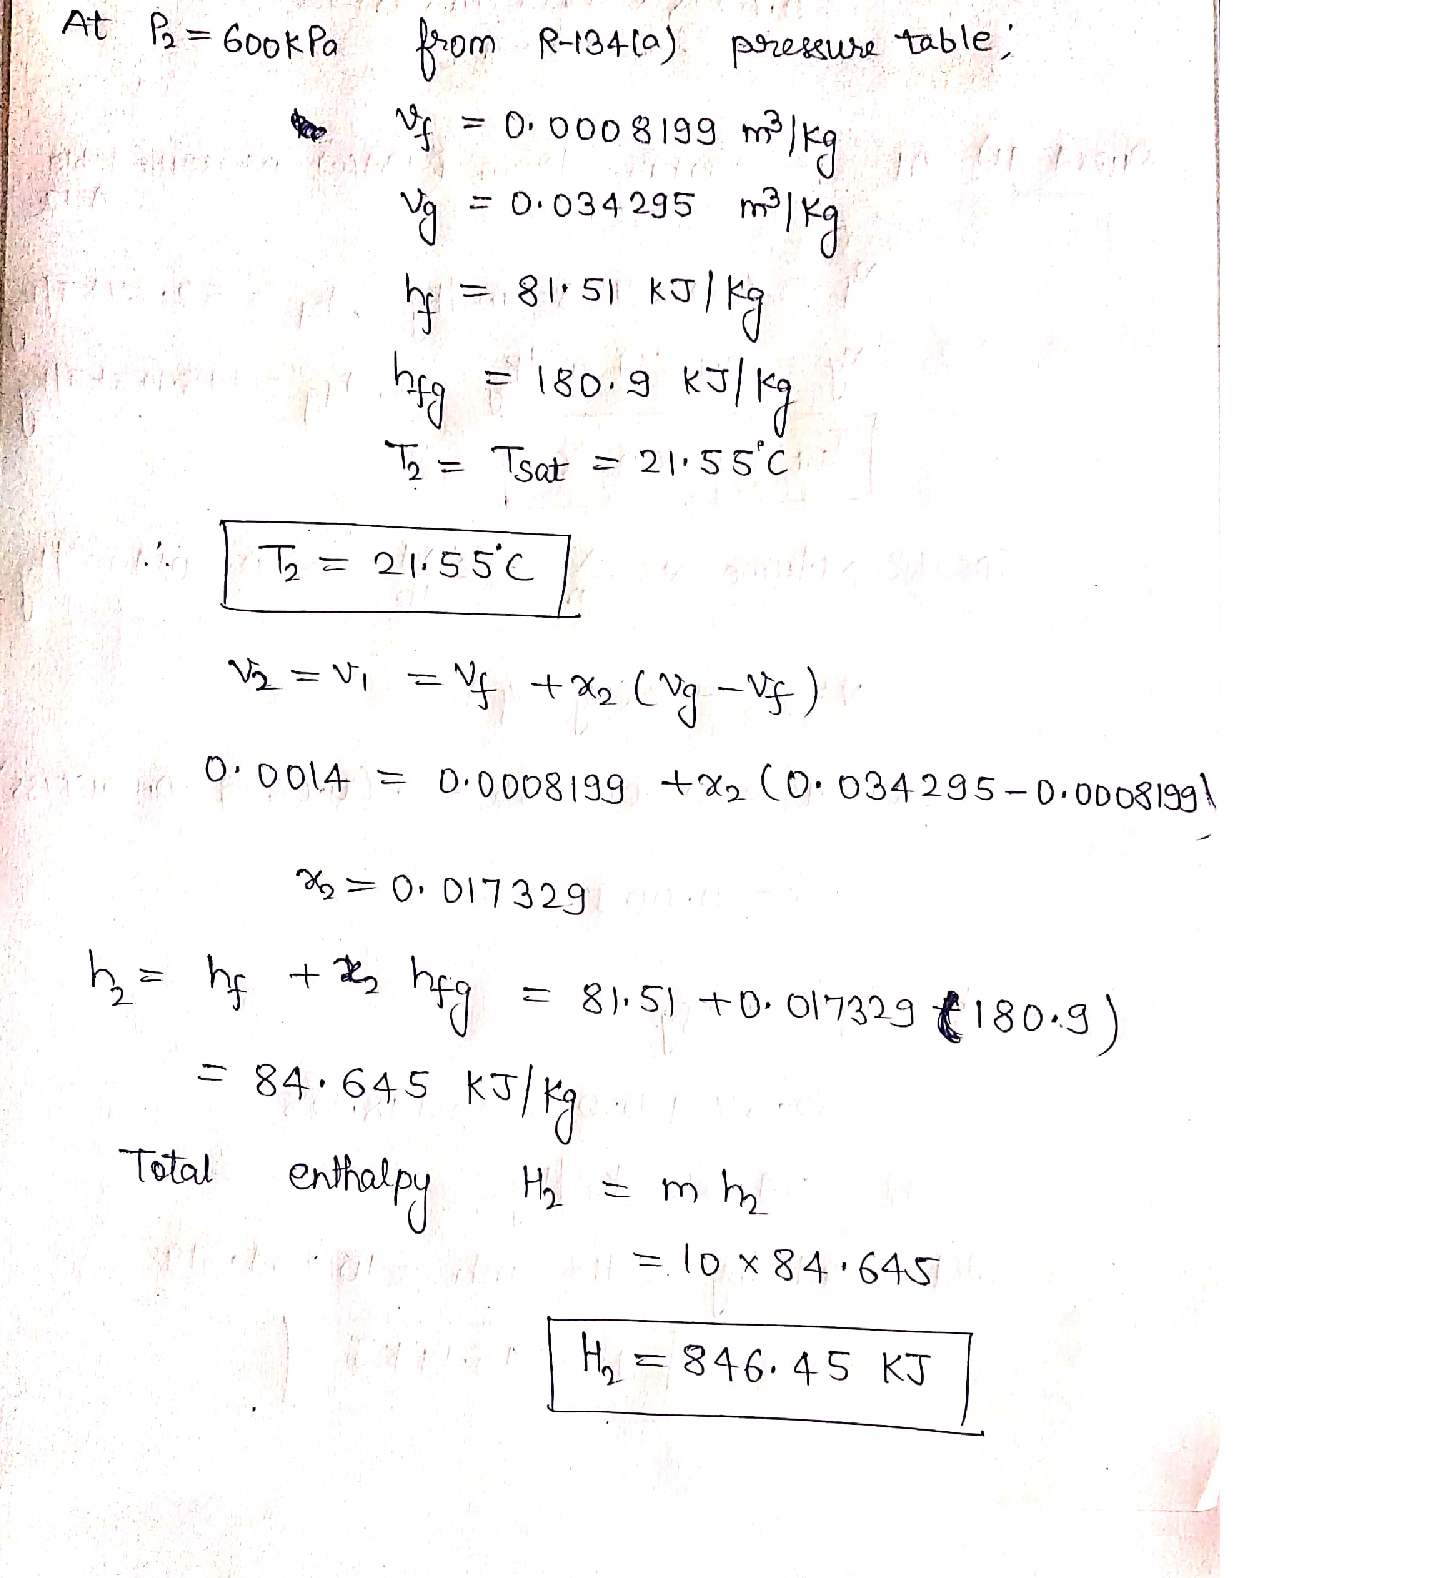 At P₂ = 600kPa from R-134(a) pressure table;
vf = 0.0008199 m³/kg
vg = 0.034295 m³/kg
hf = 81.51 KJ/kg
hfg = 180.9 KJ/kg
T₂ = Tsat = 21.55°C
∴ T₂ = 21.55°C
v₂ = v₁ = vf + x₂ (vg - vf)
0.0014 = 0.0008199 + x₂ (0.034295 - 0.0008199)
x₂ = 0.017329
h₂ = hf + x₂ hfg = 81.51 + 0.017329 (180.9)
= 84.645 KJ/kg
Total enthalpy H₂ = m h₂
= 10 x 84.645
H₂ = 846.45 KJ